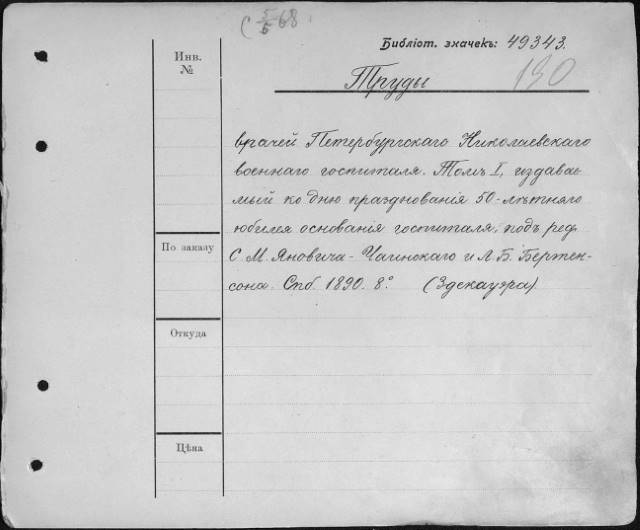 5/5 68
Библіот. значекъ: 49343.
Инв.
№
130
Труды
врачей Петербургскаго Николаевскаго
военнаго госпиталя. Томъ I, издавае-
мый ко дню празднованія 50-лѣтняго
юбилея основанія госпиталя, подъ ред.
По заказу
С. М. Яновича-Чаинскаго и Л. Б. Бертен-
сона. Спб. 1890. 8°. (Здекауэра)
Откуда
Цѣна